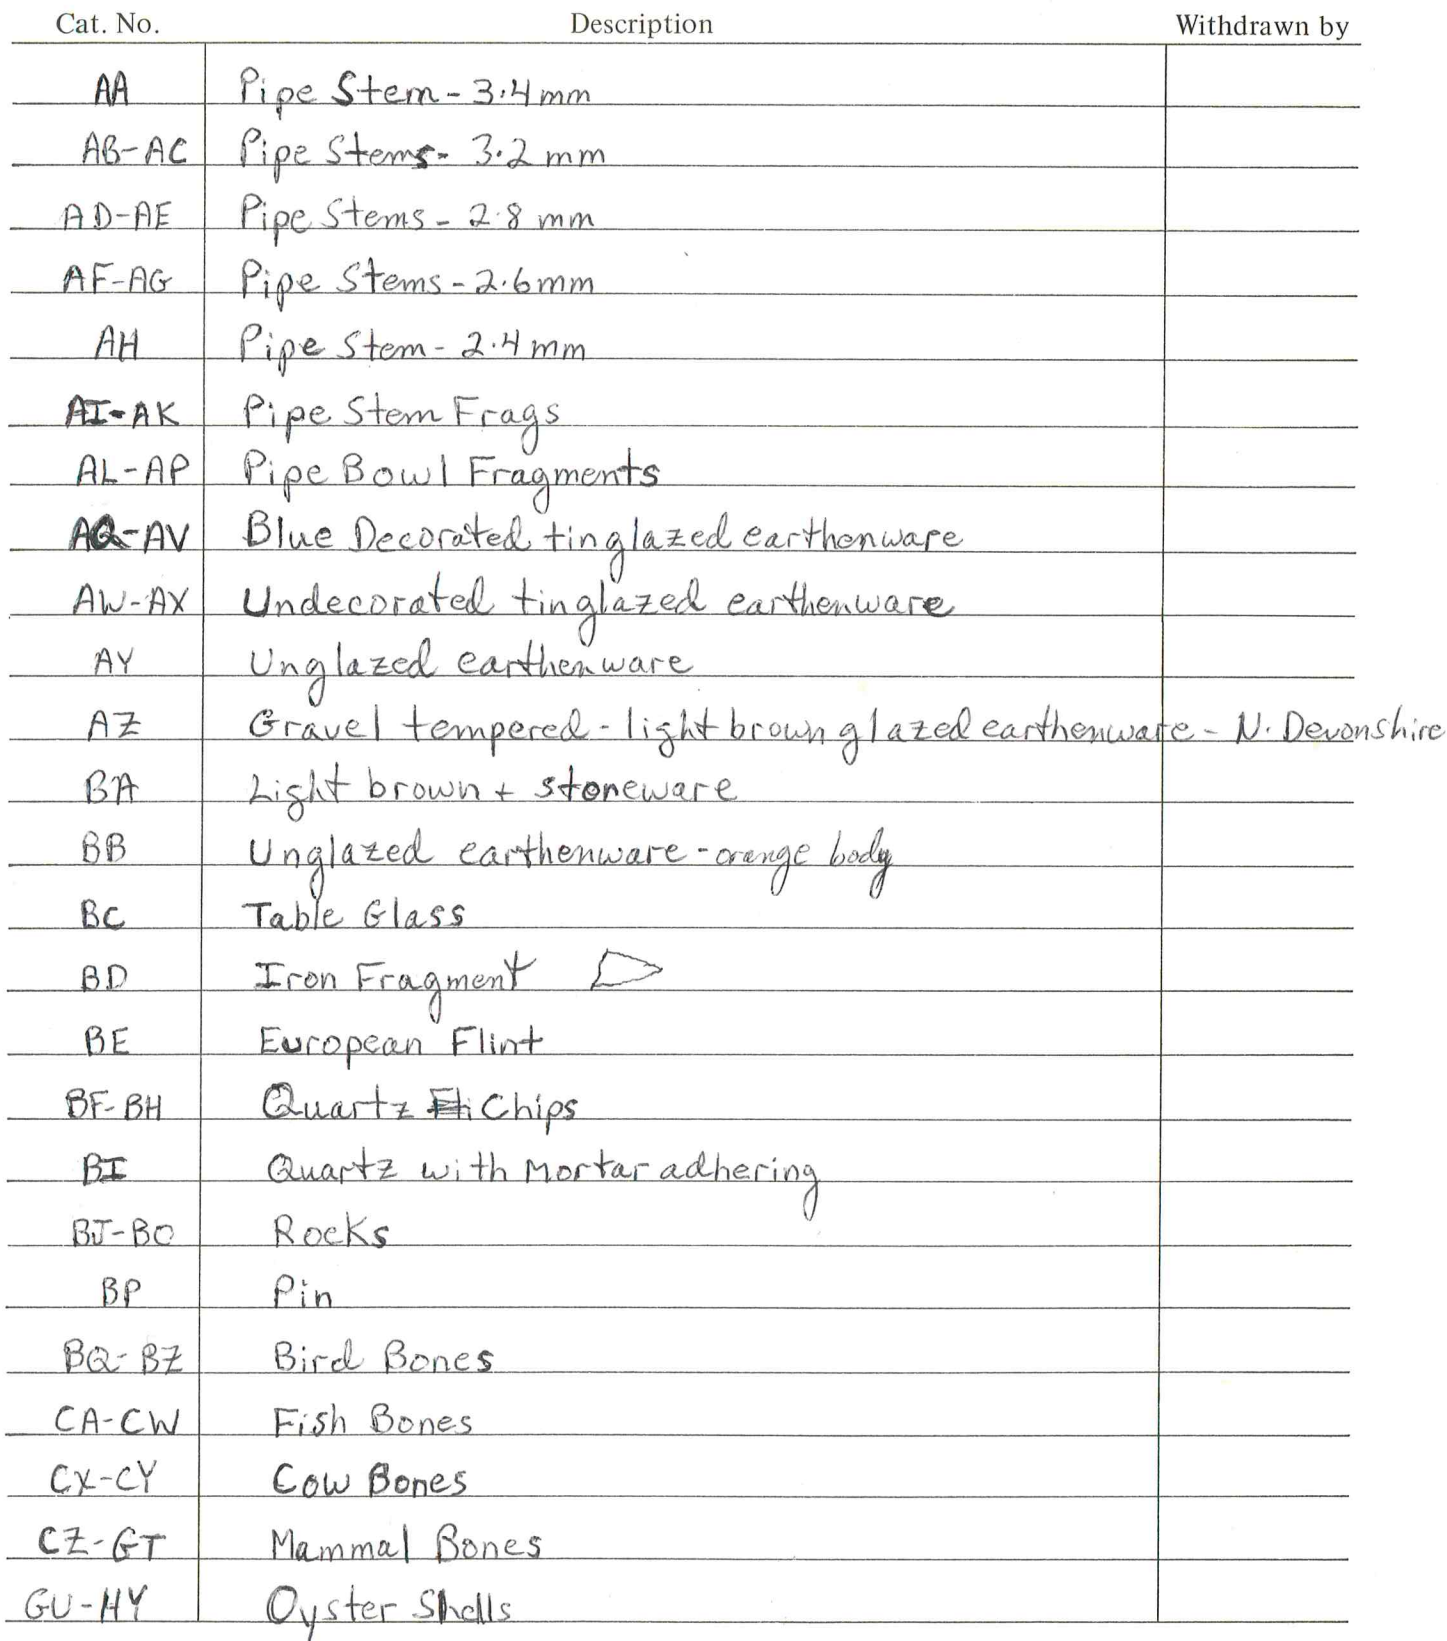 Cat. No. Description Withdrawn by
AA Pipe Stem - 3.4 mm
AB-AC Pipe Stems - 3.2 mm
AD-AE Pipe Stems - 2.8 mm
AF-AG Pipe Stems - 2.6 mm
AH Pipe Stem - 2.4 mm
AI-AK Pipe Stem Frags
AL-AP Pipe Bowl Fragments
AQ-AV Blue Decorated tinglazed earthenware
AW-AX Undecorated tinglazed earthenware
AY Unglazed earthenware
AZ Gravel tempered - light brown glazed earthenware - N. Devonshire
BA Light brown + stoneware
BB Unglazed earthenware - orange body
BC Table Glass
BD Iron Fragment
BE European Flint
BF-BH Quartz Chips
BI Quartz with Mortar adhering
BJ-BO Rocks
BP Pin
BQ-BZ Bird Bones
CA-CW Fish Bones
CX-CY Cow Bones
CZ-GT Mammal Bones
GU-HY Oyster Shells